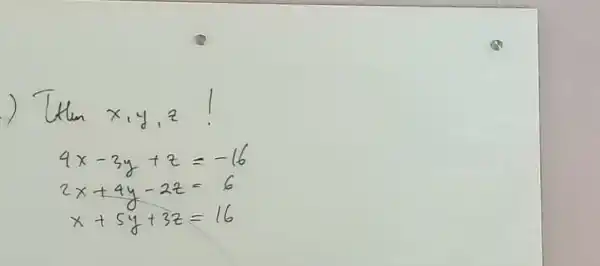 .) x, y, z !
4x - 3y + z = -16
2x + 4y - 2z = 6
x + 5y + 3z = 16